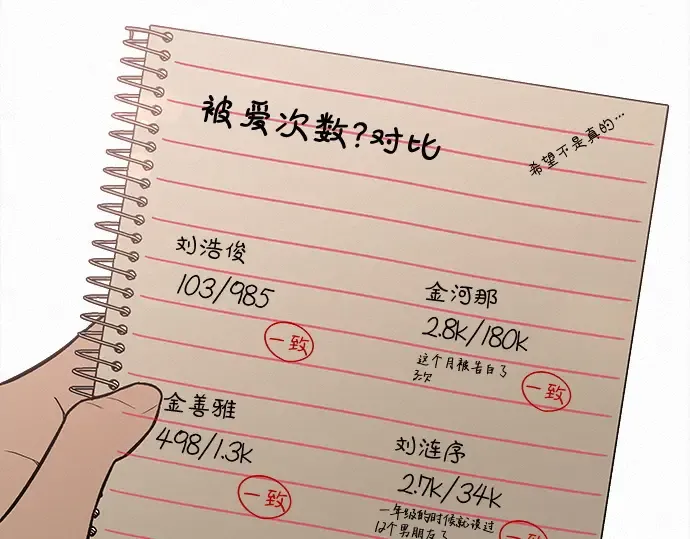 被爱次数?对比
希望不是真的…
刘浩俊
103/985
一致
金河那
2.8k/180k
这个月被告白了
3次
一致
金善雅
498/1.3k
一致
刘涟序
2.7k/34k
一年级的时候就谈过
12个男朋友了
一致